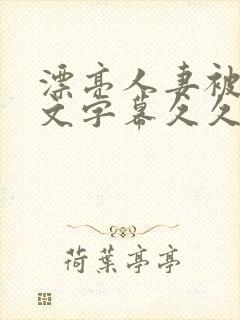 漂亮人妻被
文字幕久久
荷葉亭亭